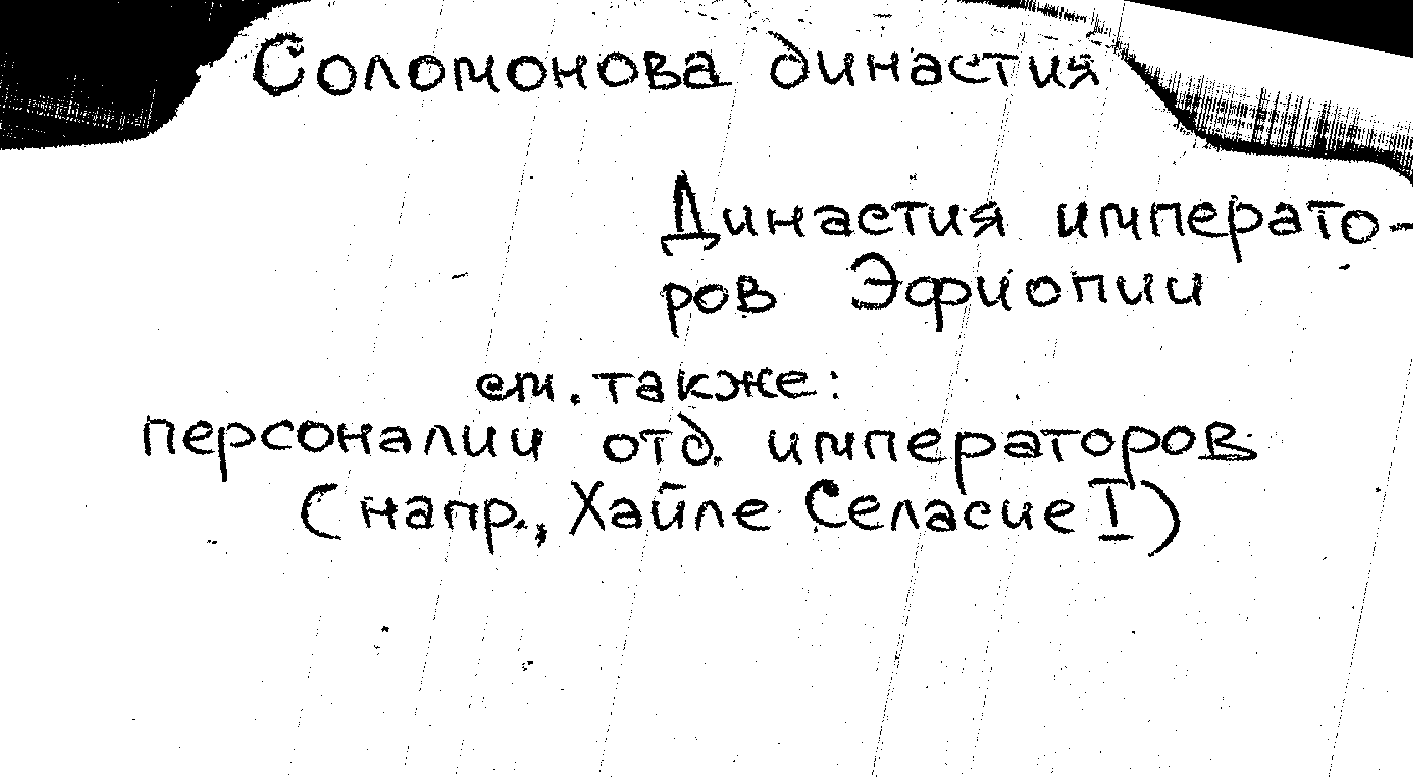 Соломонова династия
Династия императо-
ров Эфиопии
см. также:
персоналии отд. императоров
(напр., Хайле Селасие I)